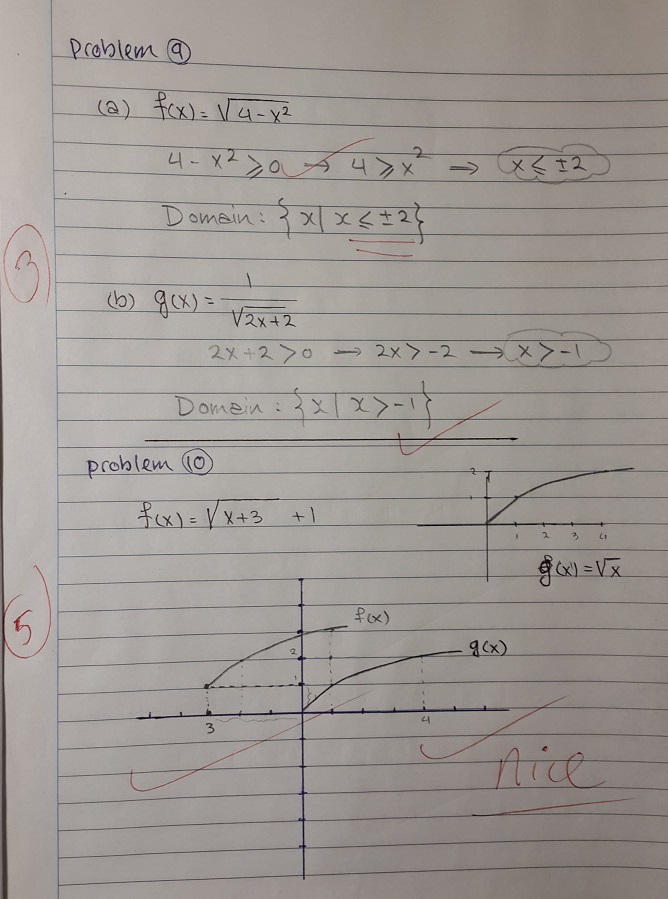 Problem 9
(a) f(x) = √(4-x²)
4 - x² ≥ 0 → 4 ≥ x² → x ≤ ±2
Domain: {x | x ≤ ±2}
3
(b) g(x) = 1/√(2x+2)
2x+2 > 0 → 2x > -2 → x > -1
Domain: {x | x > -1}
problem 10
f(x) = √(x+3) + 1
2
1
1 2 3 4
g(x) = √x
5
f(x)
2
g(x)
1
3
4
nice